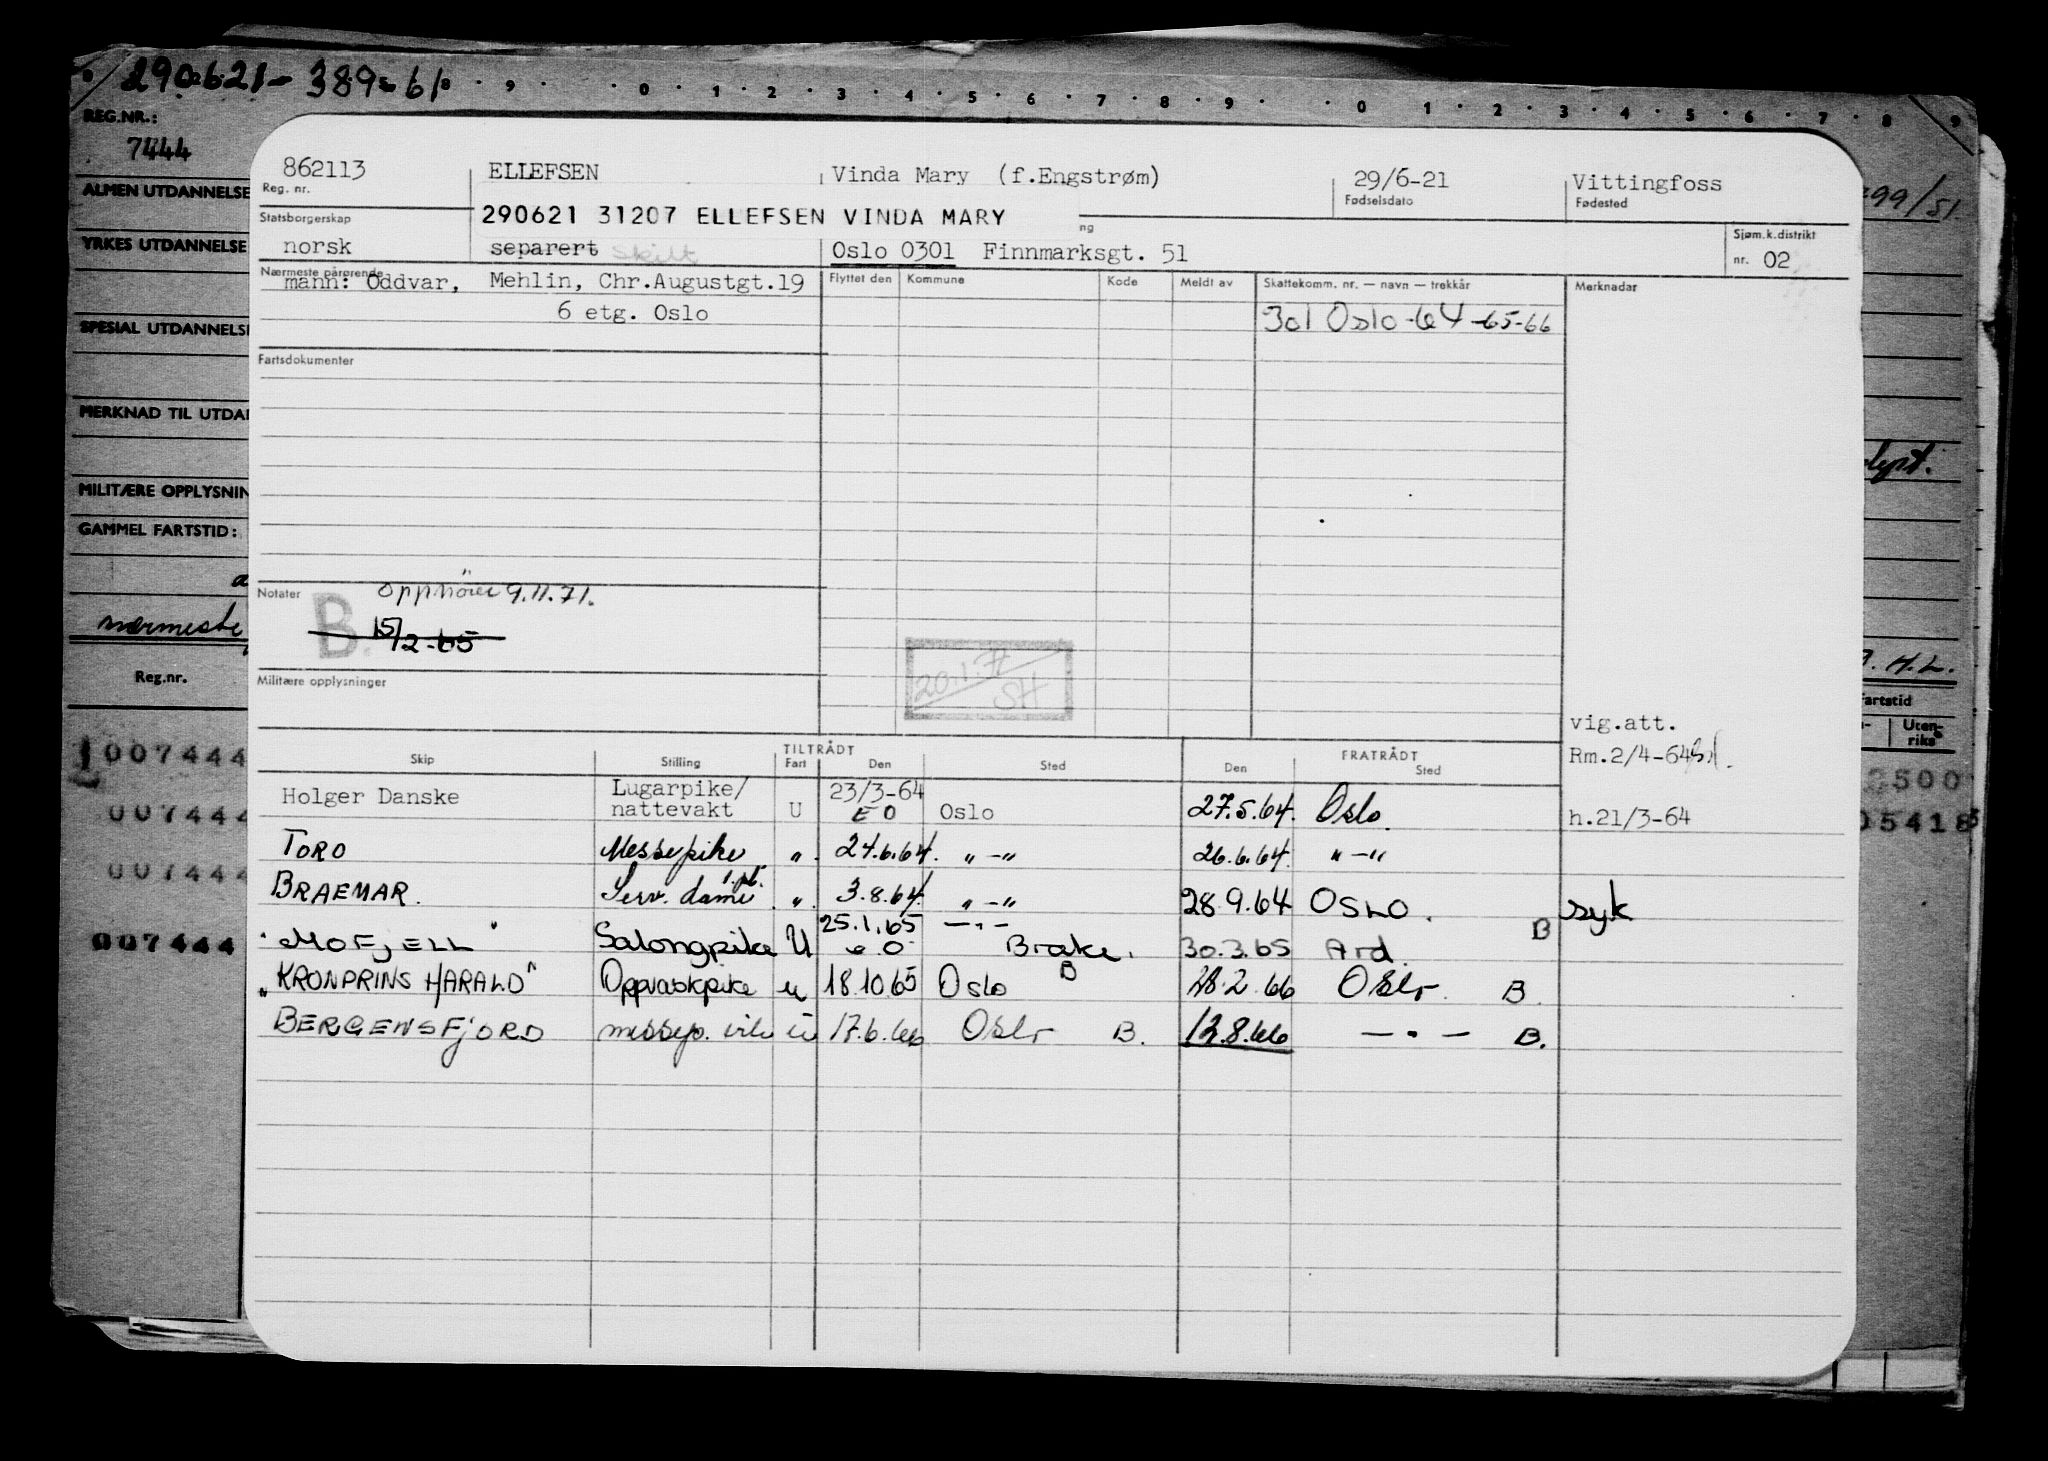 290621-38961
8 · 9 · 0 · 1 · 2 · 3 · 4 · 5 · 6 · 7 · 8 · 9 · 0 · 1 · 2 · 3 · 4 · 5 · 6 · 7 · 8 · 9
REG.NR.:
7444
ALMEN UTDANNELSE
YRKES UTDANNELSE
SPESIAL UTDANNELSE
MERKNAD TIL UTDAN
MILITÆRE OPPLYSNIN
GAMMEL FARTSTID:
nærmeste
Reg.nr.
007444
007444
007444
007444
862113 ELLEFSEN Vinda Mary (f.Engstrøm) 29/6-21 Vittingfoss
Reg. nr. Fødselsdato Fødested
Statsborgerskap 290621 31207 ELLEFSEN VINDA MARY ng Sjøm.k.distrikt
norsk separert skilt Oslo 0301 Finnmarksgt. 51 nr. 02
Nærmeste pårørende Flyttet den Kommune Kode Meldt av Skattekomm. nr. — navn — trekkår Merknader
mann: Oddvar, Mehlin, Chr.Augustgt.19
6 etg. Oslo 301 Oslo-64-65-66
Fartsdokumenter
Notater Opphører 9.11.71.
B. 15/2-65
20.1.71
SH
Militære opplysninger
vig.att.
Rm.2/4-64
TILTRÅDT FRATRÅDT
Skip Stilling Fart Den Sted Den Sted
Holger Danske Lugarpike/ nattevakt U 23/3-64 EO Oslo 27.5.64. Oslo. h.21/3-64
TORO Messepike " 24.6.64. "-" 26.6.64. "-"
BRAEMAR. Serv. dame " 3.8.64. "-" 28.9.64 OSLO. syk
"MOFJELL" Salongpike U 25.1.65 6.0. -"- Brake. B 30.3.65 Ard. B
"KRONPRINS HARALD" Oppvaskpike u 18.10.65 Oslo B 28.2.66 Oslo. B
BERGENSFJORD messep. u 17.6.66 Oslo B. 12.8.66 -"- B.
99/51
dept.
H.L.
Fartstid
Uten-
riks
2500
05418